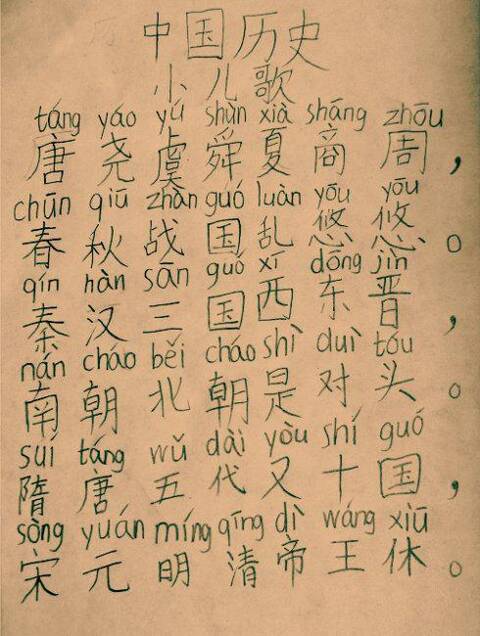 中国历史
小儿歌
táng yáo yú shùn xià shāng zhōu
唐尧虞舜夏商周，
chūn qiū zhàn guó luàn yōu yōu
春秋战国乱悠悠。
qín hàn sān guó xī dōng jìn
秦汉三国西东晋，
nán cháo běi cháo shì duì tóu
南朝北朝是对头。
suí táng wǔ dài yòu shí guó
隋唐五代又十国，
sòng yuán míng qīng dì wáng xiū
宋元明清帝王休。